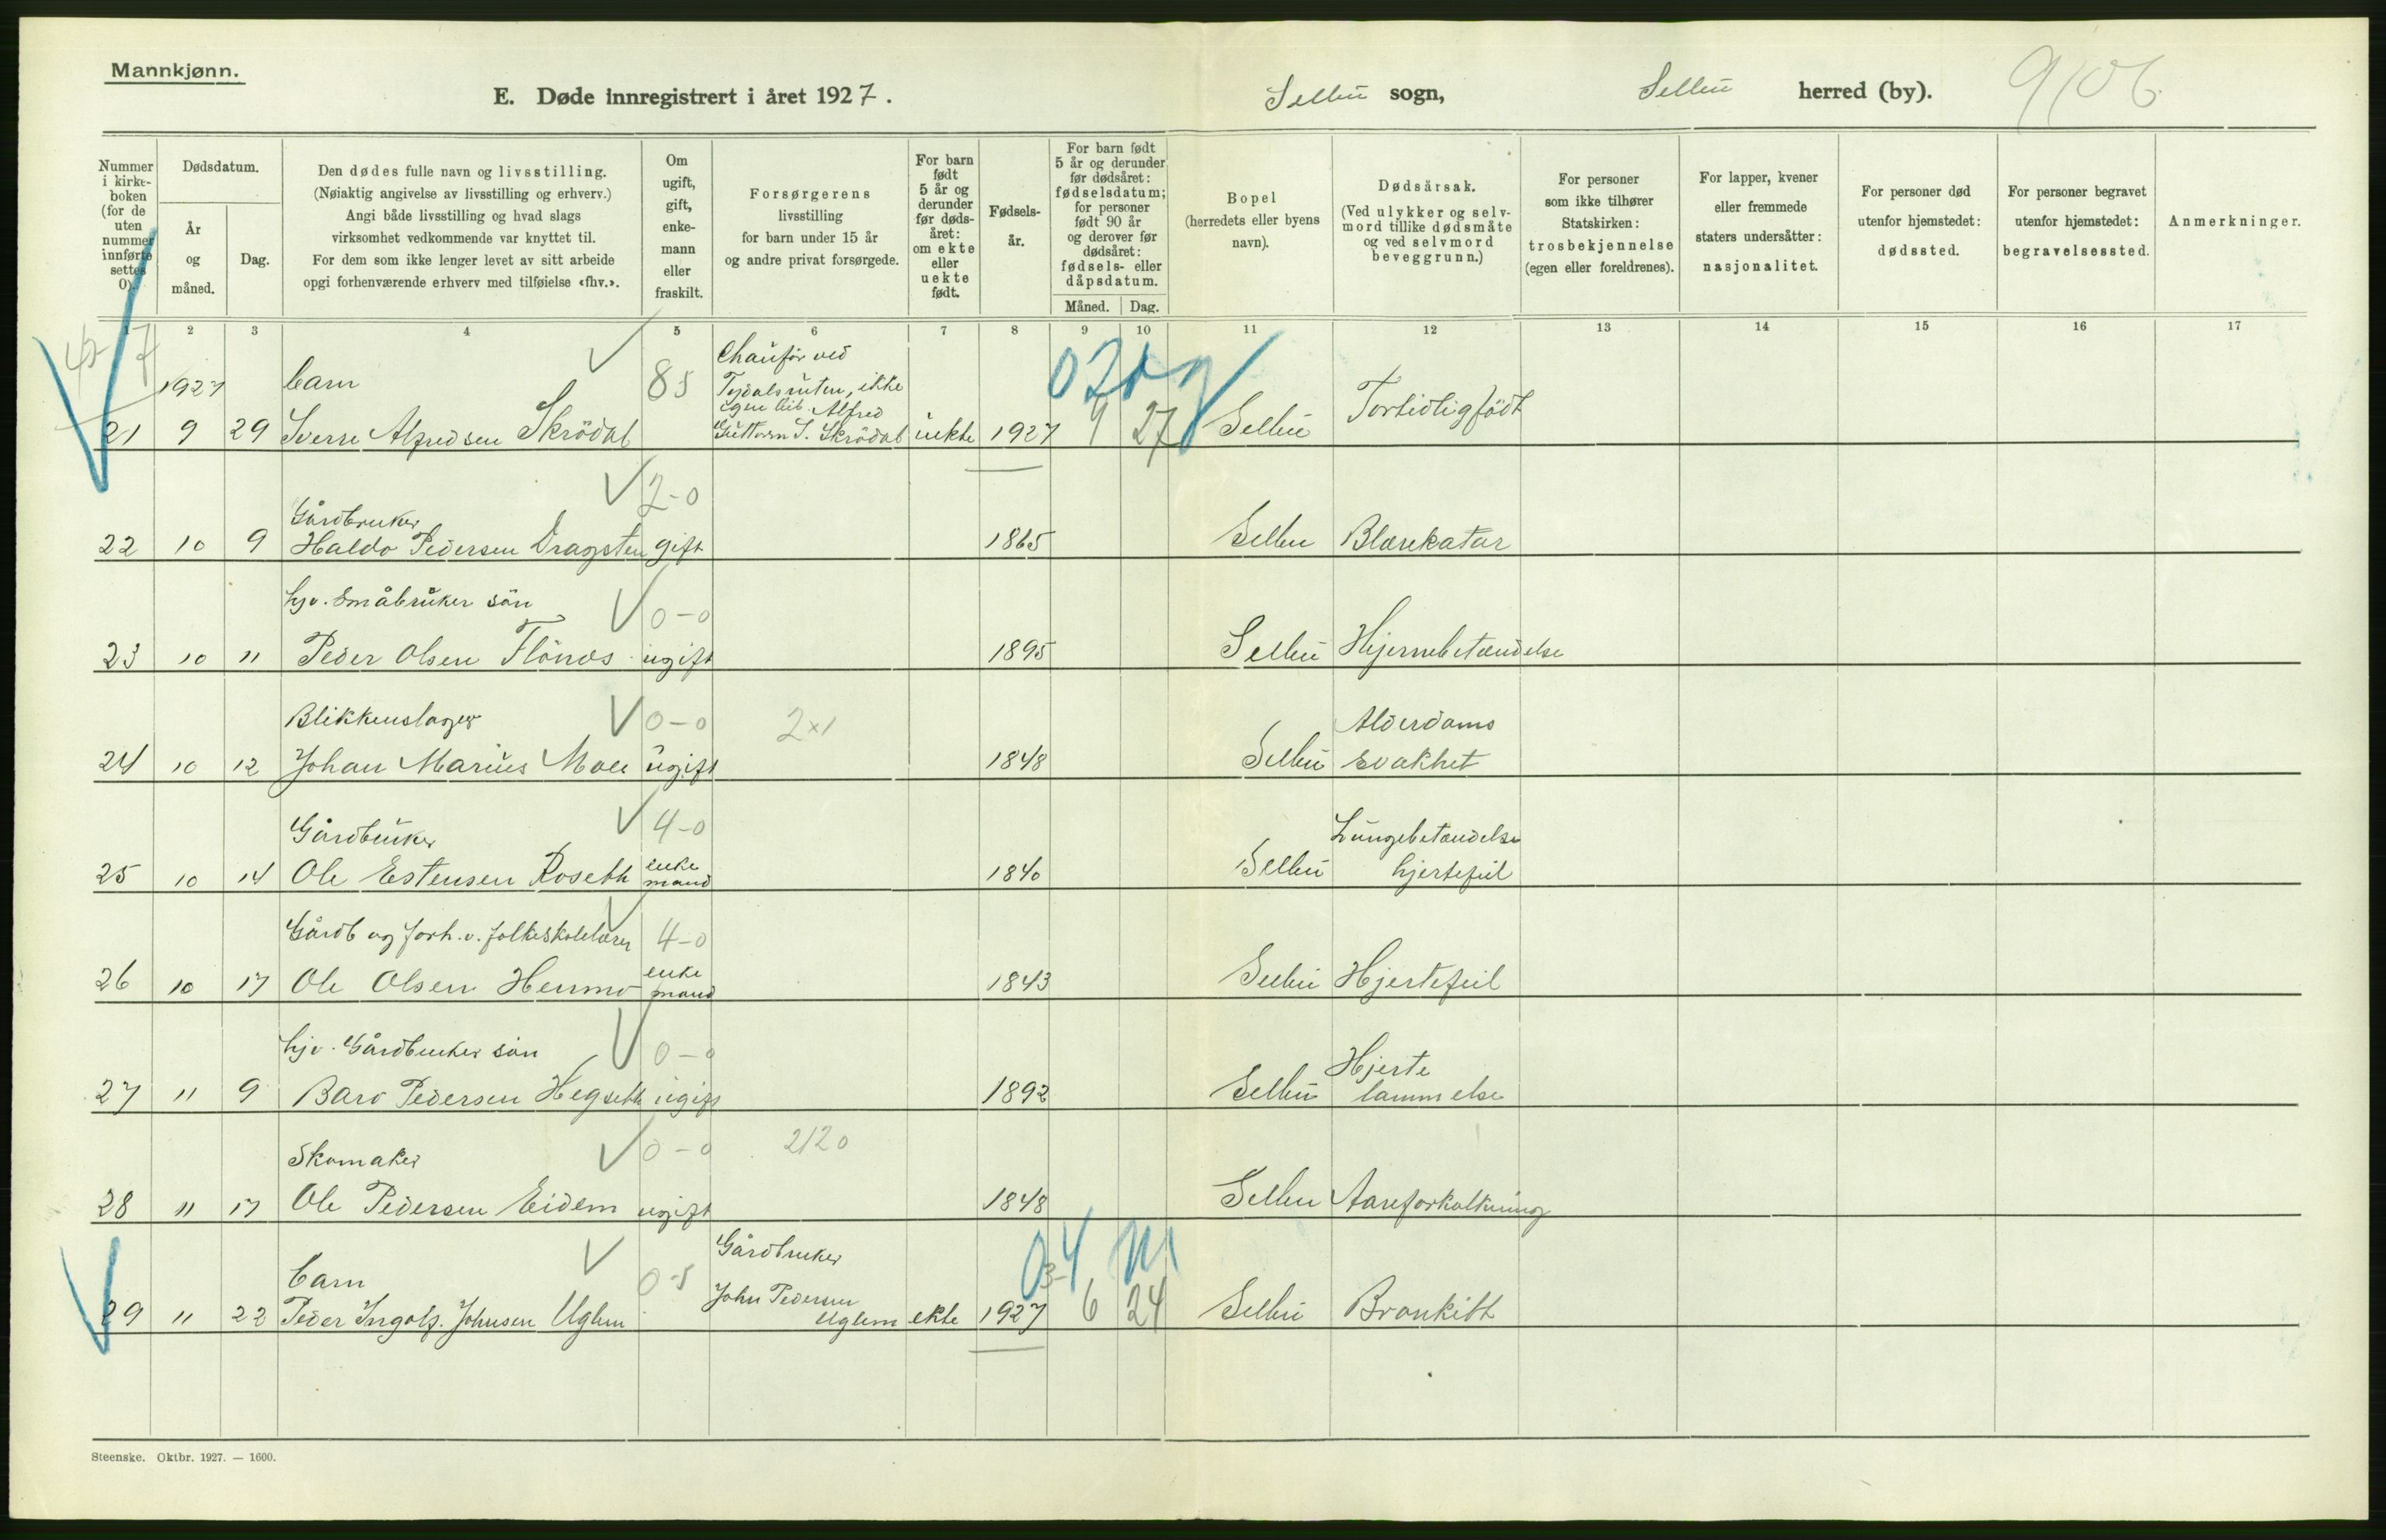 Mannkjønn.
E. Døde innregistrert i året 1927.
Selbu sogn,
Selbu herred (by).
9106
Nummer i kirke-boken (for de uten nummer innførte settes 0).
Dødsdatum.
År og måned.
Dag.
Den dødes fulle navn og livsstilling.
(Nøiaktig angivelse av livsstilling og erhverv.)
Angi både livsstilling og hvad slags
virksomhet vedkommende var knyttet til.
For dem som ikke lenger levet av sitt arbeide
opgi forhenværende erhverv med tilføielse «fhv.».
Om ugift, gift, enke-mann eller fraskilt.
Forsørgerens
livsstilling
for barn under 15 år
og andre privat forsørgede.
For barn født 5 år og derunder før døds-året: om ekte eller uekte født.
Fødsels-år.
For barn født 5 år og derunder før dødsåret: fødselsdatum; for personer født 90 år og derover før dødsåret: fødsels- eller dåpsdatum.
Måned. Dag.
Bopel
(herredets eller byens
navn).
Dødsårsak.
(Ved ulykker og selv-
mord tillike dødsmåte
og ved selvmord
beveggrunn.)
For personer
som ikke tilhører
Statskirken:
trosbekjennelse
(egen eller foreldrenes).
For lapper, kvener
eller fremmede
staters undersåtter:
nasjonalitet.
For personer død
utenfor hjemstedet:
dødssted.
For personer begravet
utenfor hjemstedet:
begravelsessted.
Anmerkninger.
1 2 3 4 5 6 7 8 9 10 11 12 13 14 15 16 17
1927 barn 85 Chauför ved
Tydalsruten, ikke
egen bil. Alfred
21 9 29 Sverre Alfredsen Skrödal Guttorm S. Skrödal uekte 1927 9 27 Selbu Fortidligfödt
2-0
Gårdbruker
22 10 9 Haldo Pedersen Dragsten gift 1865 Selbu Blærekatar
hjv. Småbruker sön 0-0
23 10 11 Peder Olsen Flönæs ugift 1895 Selbu Hjernebetændelse
Blikkenslager 0-0 2x1 Alderdoms
24 10 12 Johan Marius Moee ugift 1848 Selbu svakhet
Gårdbruker 4-0 Lungebetændelse
25 10 14 Ole Estensen Roseth enke mand 1840 Selbu hjertefeil
Gårdb og forh.v. folkeskolelærer 4-0
26 10 17 Ole Olsen Hermo enke mand 1843 Selbu Hjertefeil
hjv. Gårdbruker sön 0-0 Hjerte
27 11 9 Baro Pedersen Hegseth ugift 1892 Selbu lammelse
Skomaker 0-0 2120
28 11 17 Ole Pedersen Eidem ugift 1848 Selbu Aareforkalkning
Gårdbruker
barn 0-5 John Pedersen
29 11 22 Peder Ingolf. Johnsen Uglem Uglem ekte 1927 6 24 Selbu Bronkitt
Steenske. Oktbr. 1927. — 1600.